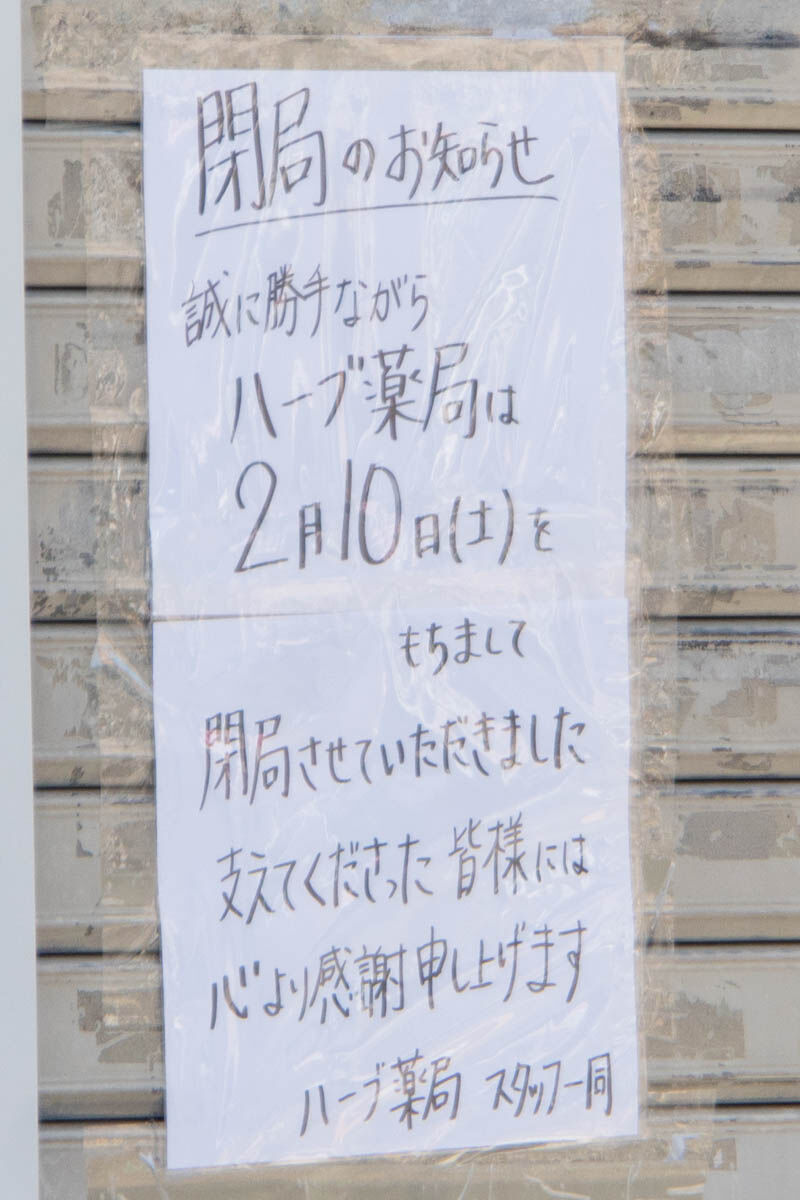 閉局のお知らせ
誠に勝手ながら
ハーブ薬局は
2月10日(土)を
もちまして
閉局させていただきました
支えてくださった皆様には
心より感謝申し上げます
ハーブ薬局 スタッフ一同